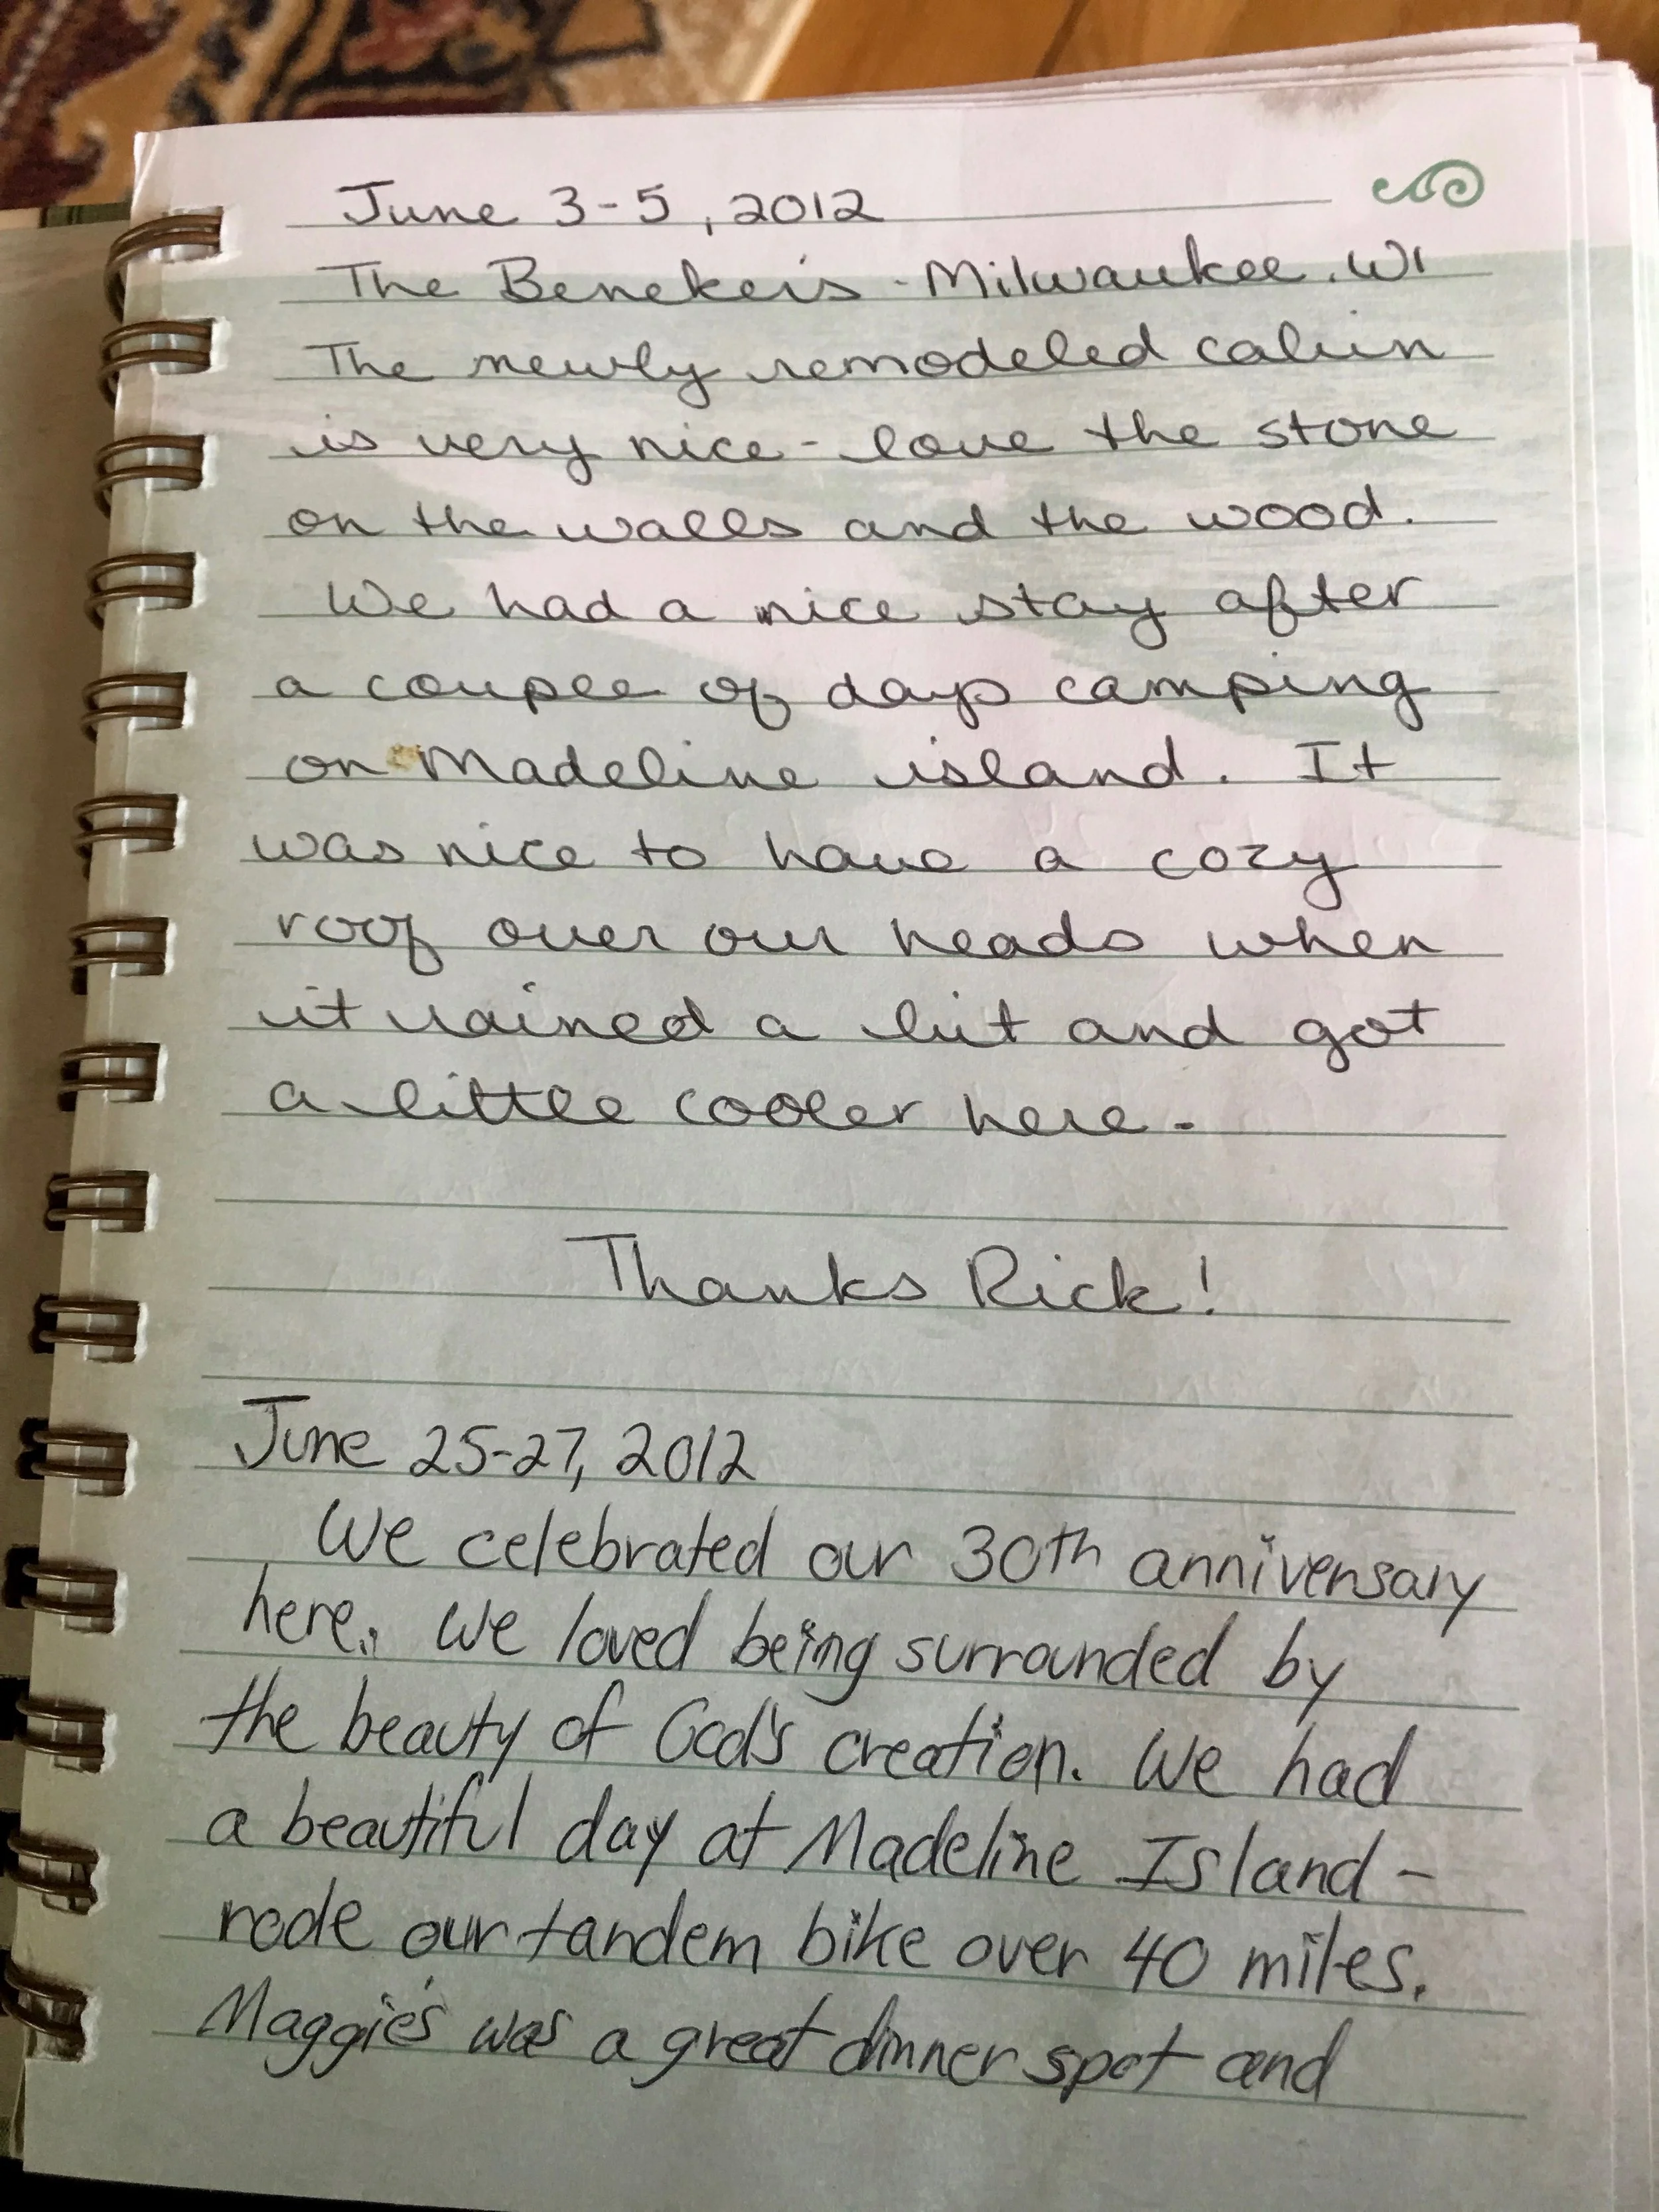 June 3-5, 2012
The Benekeis - Milwaukee. WI
The newly remodeled cabin
is very nice - love the stone
on the walls and the wood.
We had a nice stay after
a couple of days camping
on Madeline island. It
was nice to have a cozy
roof over our heads when
it rained a bit and got
a little cooler here -
Thanks Rick!
June 25-27, 2012
We celebrated our 30th anniversary
here. We loved being surrounded by
the beauty of God's creation. We had
a beautiful day at Madeline Island -
rode our tandem bike over 40 miles.
Maggie's was a great dinner spot and